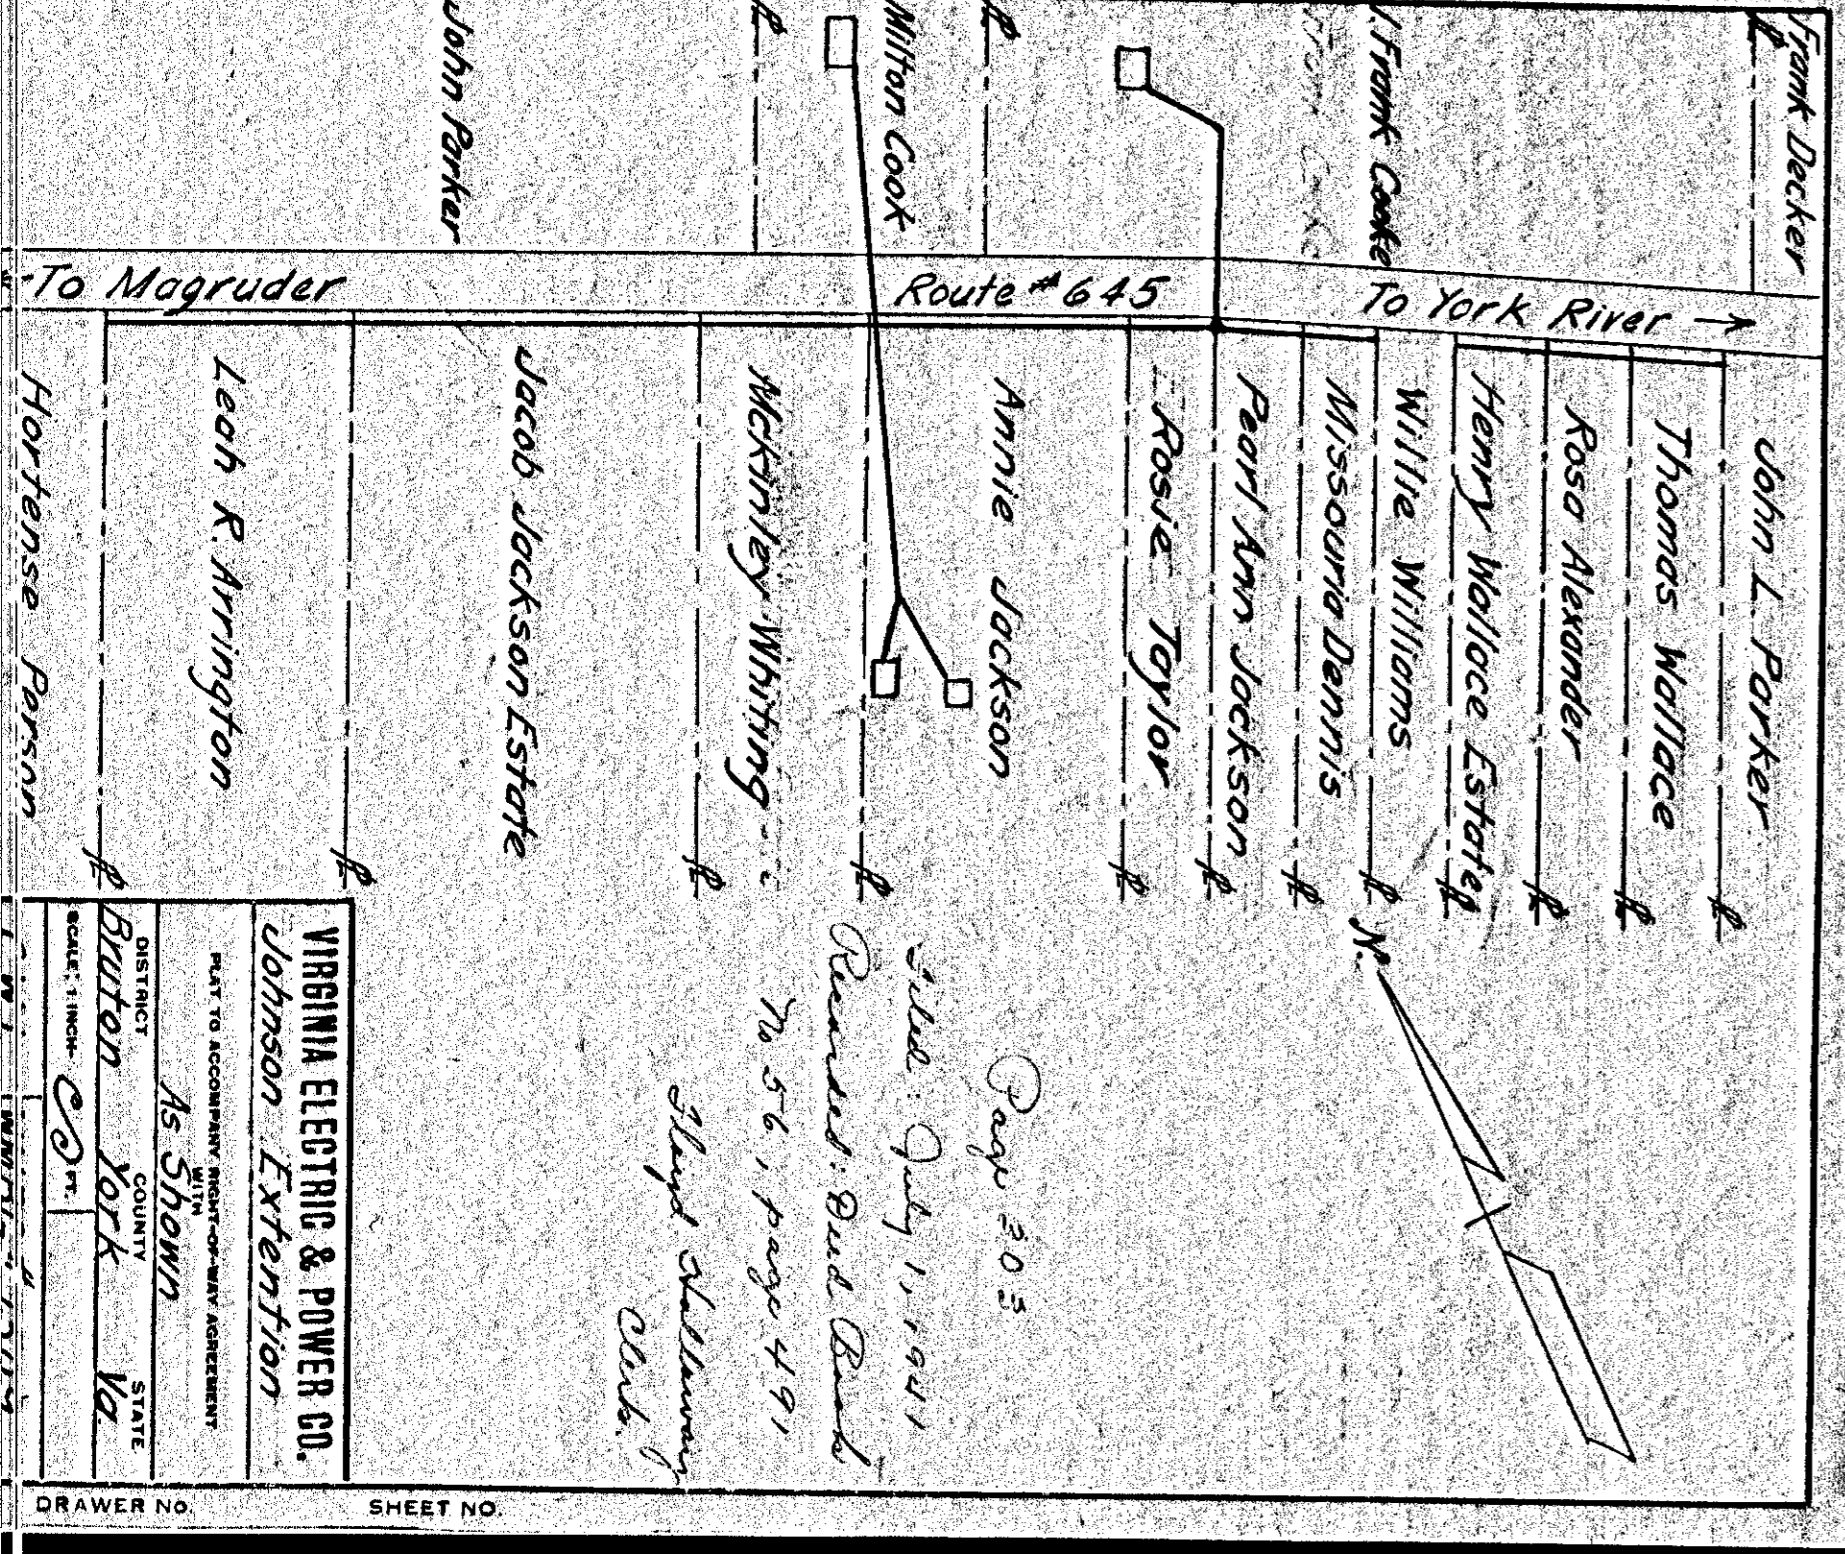 Frank Decker
J. Frank Cooke
Milton Cook
John Parker
←To Magruder
Route #645
To York River →
John L. Parker
Thomas Wallace
Rosa Alexander
Henry Wallace Estate
Willie Williams
Missouria Dennis
Pearl Ann Jackson
Rosie Taylor
Annie Jackson
McKinley Whiting
Jacob Jackson Estate
Leah R. Arrington
Hortense Person
N.
Page 303
Filed: July 1, 1941
Recorded: Deed Book
No 56, page 491
Floyd Holloway
Clerk.
VIRGINIA ELECTRIC & POWER CO.
Johnson Extention
PLAT TO ACCOMPANY RIGHT-OF-WAY AGREEMENT
WITH
As Shown
DISTRICT COUNTY STATE
Bruton York Va
SCALE: 1 INCH= FT.
DRAWER NO.
SHEET NO.